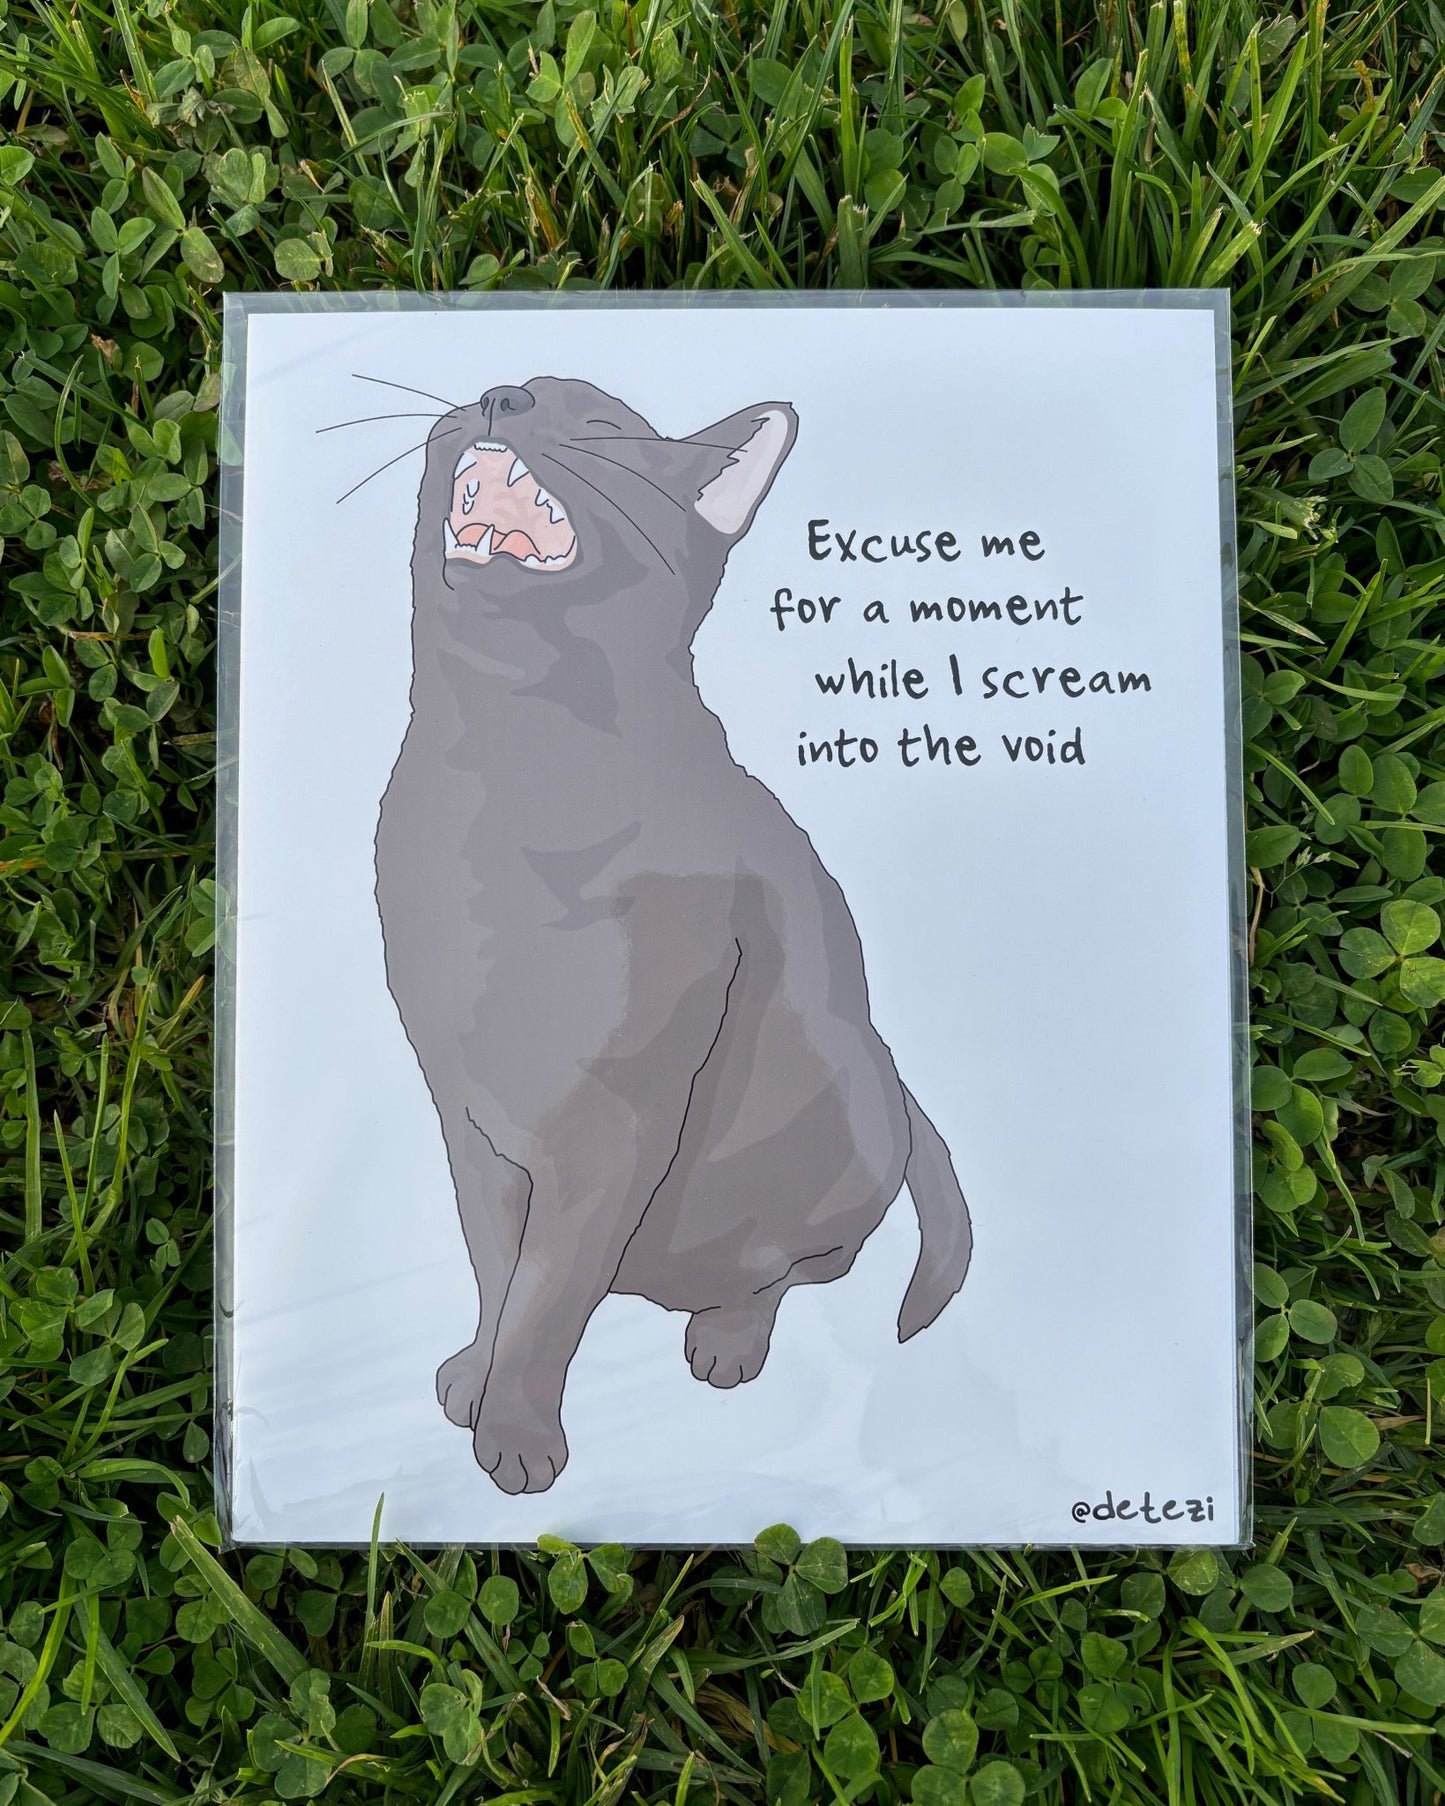 Excuse me
for a moment
while I scream
into the void
@detezi